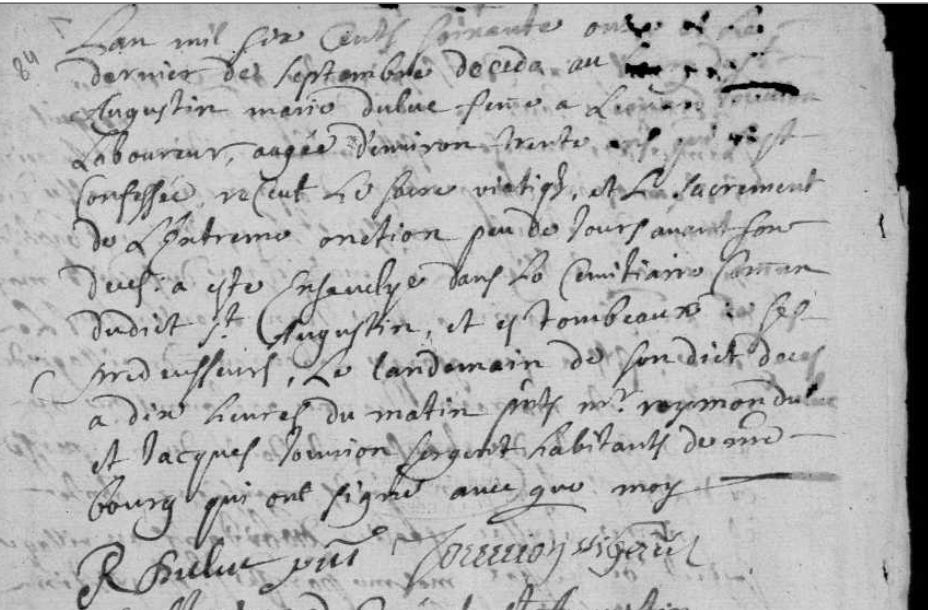 84
Lan mil six Cents soixante onze et le
dernier de septambre deceda au
Augustin marie duluc feme a Leonard
Laboureur, augée d'enuiron trente ans, qui s'est
Confessée, reçeut Le sacre viatiq, et Le sacrement
de Lextreme onction peu de Jours auant son
deces. a este Enseuelye dans Le Cemitiaire Commun
dudict St Augustin, et es tombeaux de ses
predecesseurs, Le landemain de son dict deces
a dix heures du matin pnts mr. reymond duluc
et Jacques Jouuion sergent habitants de me
bourg qui ont signe auec que moy
R Duluc pnt Jouuion